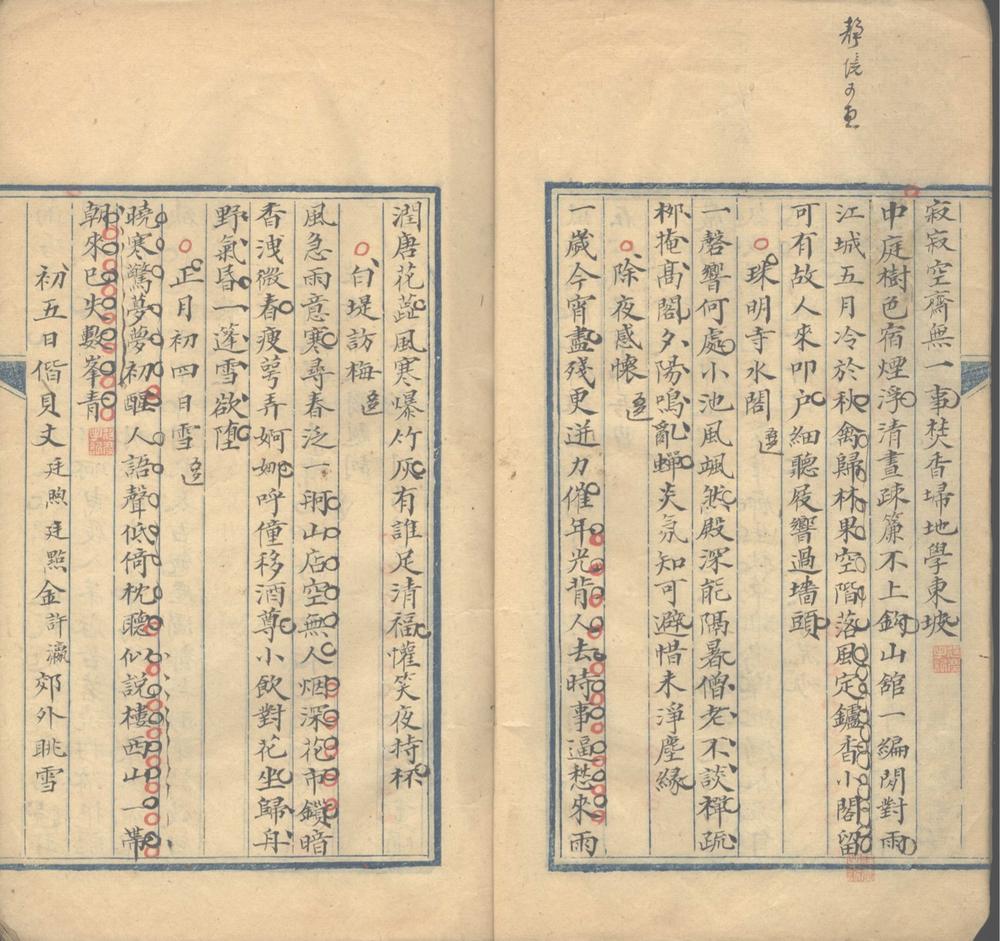 靜境可思
寂寂空齋無一事焚香埽地學東坡
中庭樹色宿煙浮清晝疎簾不上鈎山舘一編閒對雨
江城五月冷於秋禽歸林果空階落風定鑪香小閣留
可有故人來叩户細聽屐響過墻頭
珠明寺水閣
一磬響何處小池風颯然殿深能隔暑僧老不談禪疏
栁掩髙閣夕陽鳴亂蟬炎氛知可避惜未淨塵緣
除夜感懷
一歲今宵盡殘更迸力催年光背人去時事逼愁來雨
潤唐花蕋風寒爆竹灰有誰足清福懽笑夜持杯
白堤訪梅
風急雨意寒尋春泛一舸山店空無人烟深花市鎖暗
香洩微春瘦萼弄婀娜呼僮移酒尊小飲對花坐歸舟
野氣昏一蓬雪欲墮
正月初四日雪
曉寒驚夢夢初醒人語聲低倚枕聽似說樓西山一帶
朝來已失數峯青
初五日偕貝丈廷煦廷點金許瀛郊外眺雪